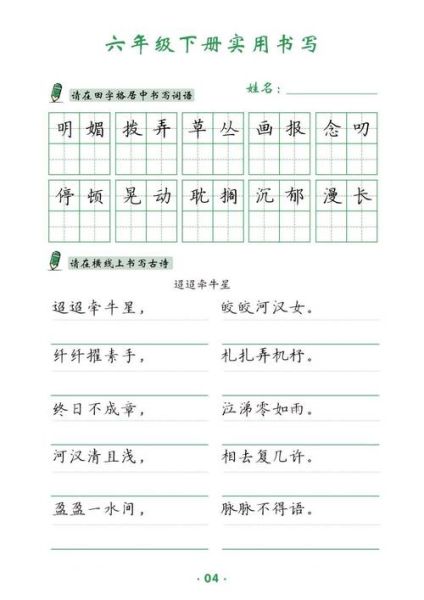 六年级下册实用书写
请在田字格居中书写词语
姓名：
明媚 拨弄 草丛 画报 念叨
停顿 晃动 耽搁 沉郁 漫长
请在横线上书写古诗
迢迢牵牛星
迢迢牵牛星， 皎皎河汉女。
纤纤擢素手， 札札弄机杼。
终日不成章， 泣涕零如雨。
河汉清且浅， 相去复几许。
盈盈一水间， 脉脉不得语。
· 04 ·